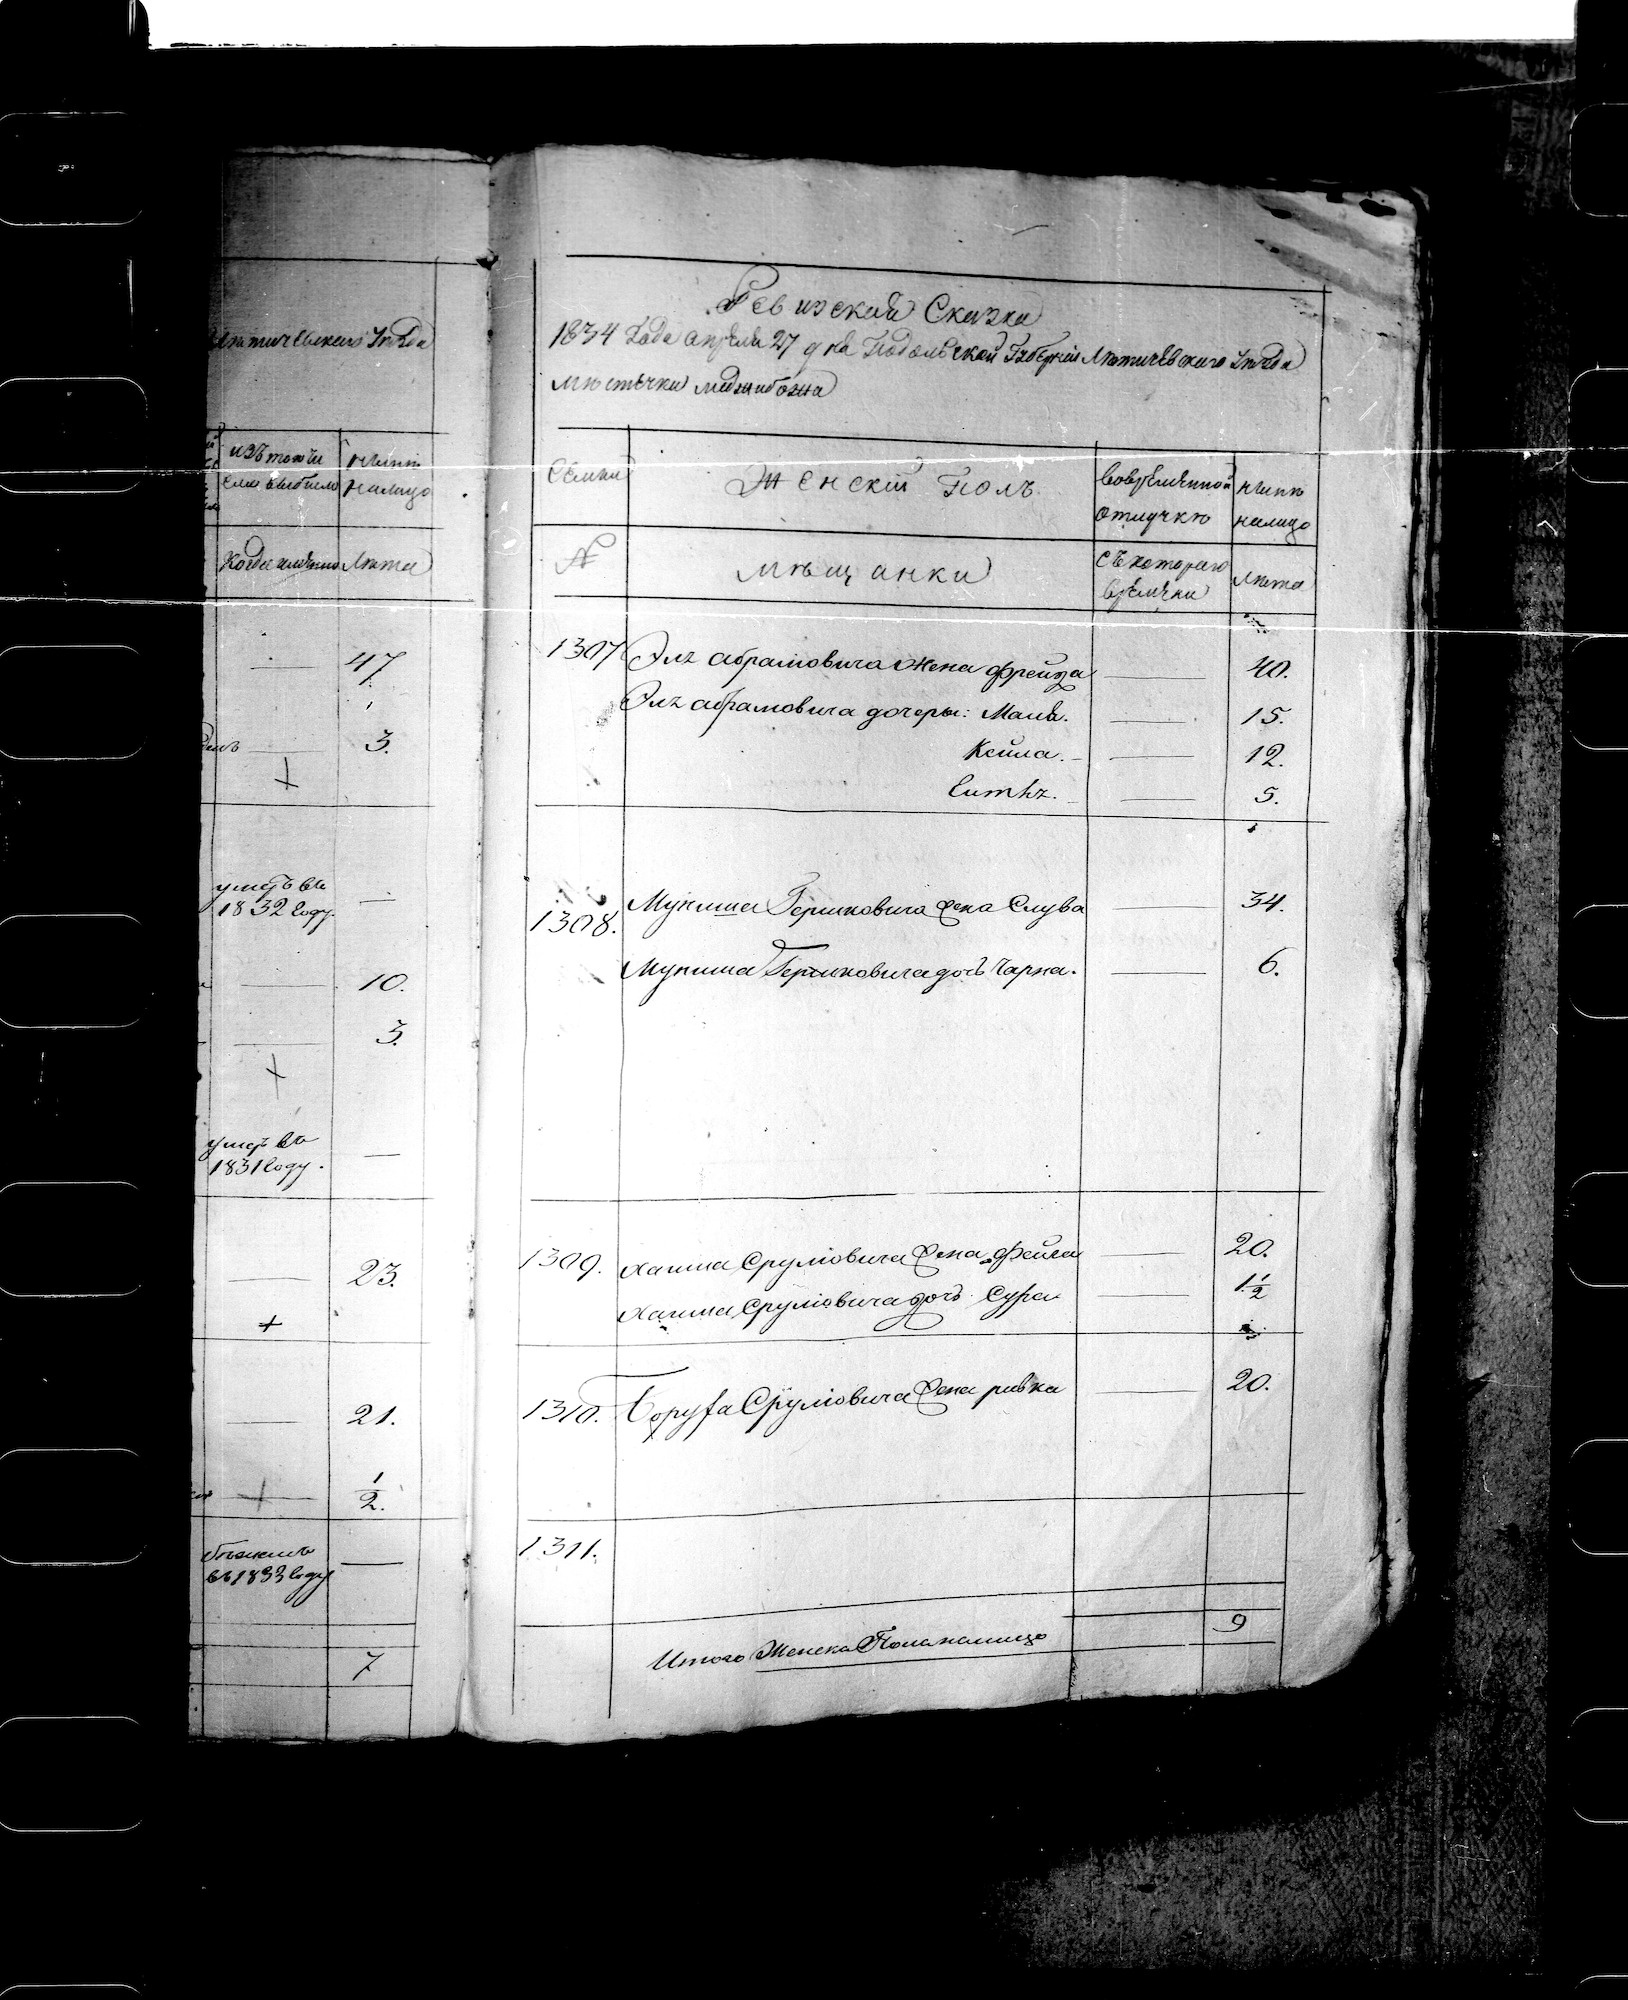 Лѣтичевскаго Уѣзда
изъ того чи
сла выбыло
нынѣ
налицо
Когда именно
Лѣта
47
3.
умеръ въ
1832 году.
10.
3.
умеръ въ
1831 году.
23.
21.
1/2.
въ 1833 году
7
Ревизская Сказка
1834 Года апреля 27 дня Подольской Губерніи Лѣтичевскаго Уѣзда
мѣстечка меджибожа
Семьи
Женскій Полъ
вовременной
отлучкѣ
нынѣ
налицо
№
мѣщанки
съ котораго
времени
лѣта
1307 Эля абрамовича жена фрейда 40.
Эля абрамовича дочеры: Маля. 15.
Кейла. 12.
Ентя. 5.
1308. Муниша Гершковича жена Слува 34.
Муниша Гершковича дочь Чарна. 6.
1309. Хаима Срулювича жена фейга 20.
Хаима Срулювича дочь Сура 1 1/2
1310. Боруха Срулювича жена ривка 20.
1311.
Итого Женска Пола налицо 9